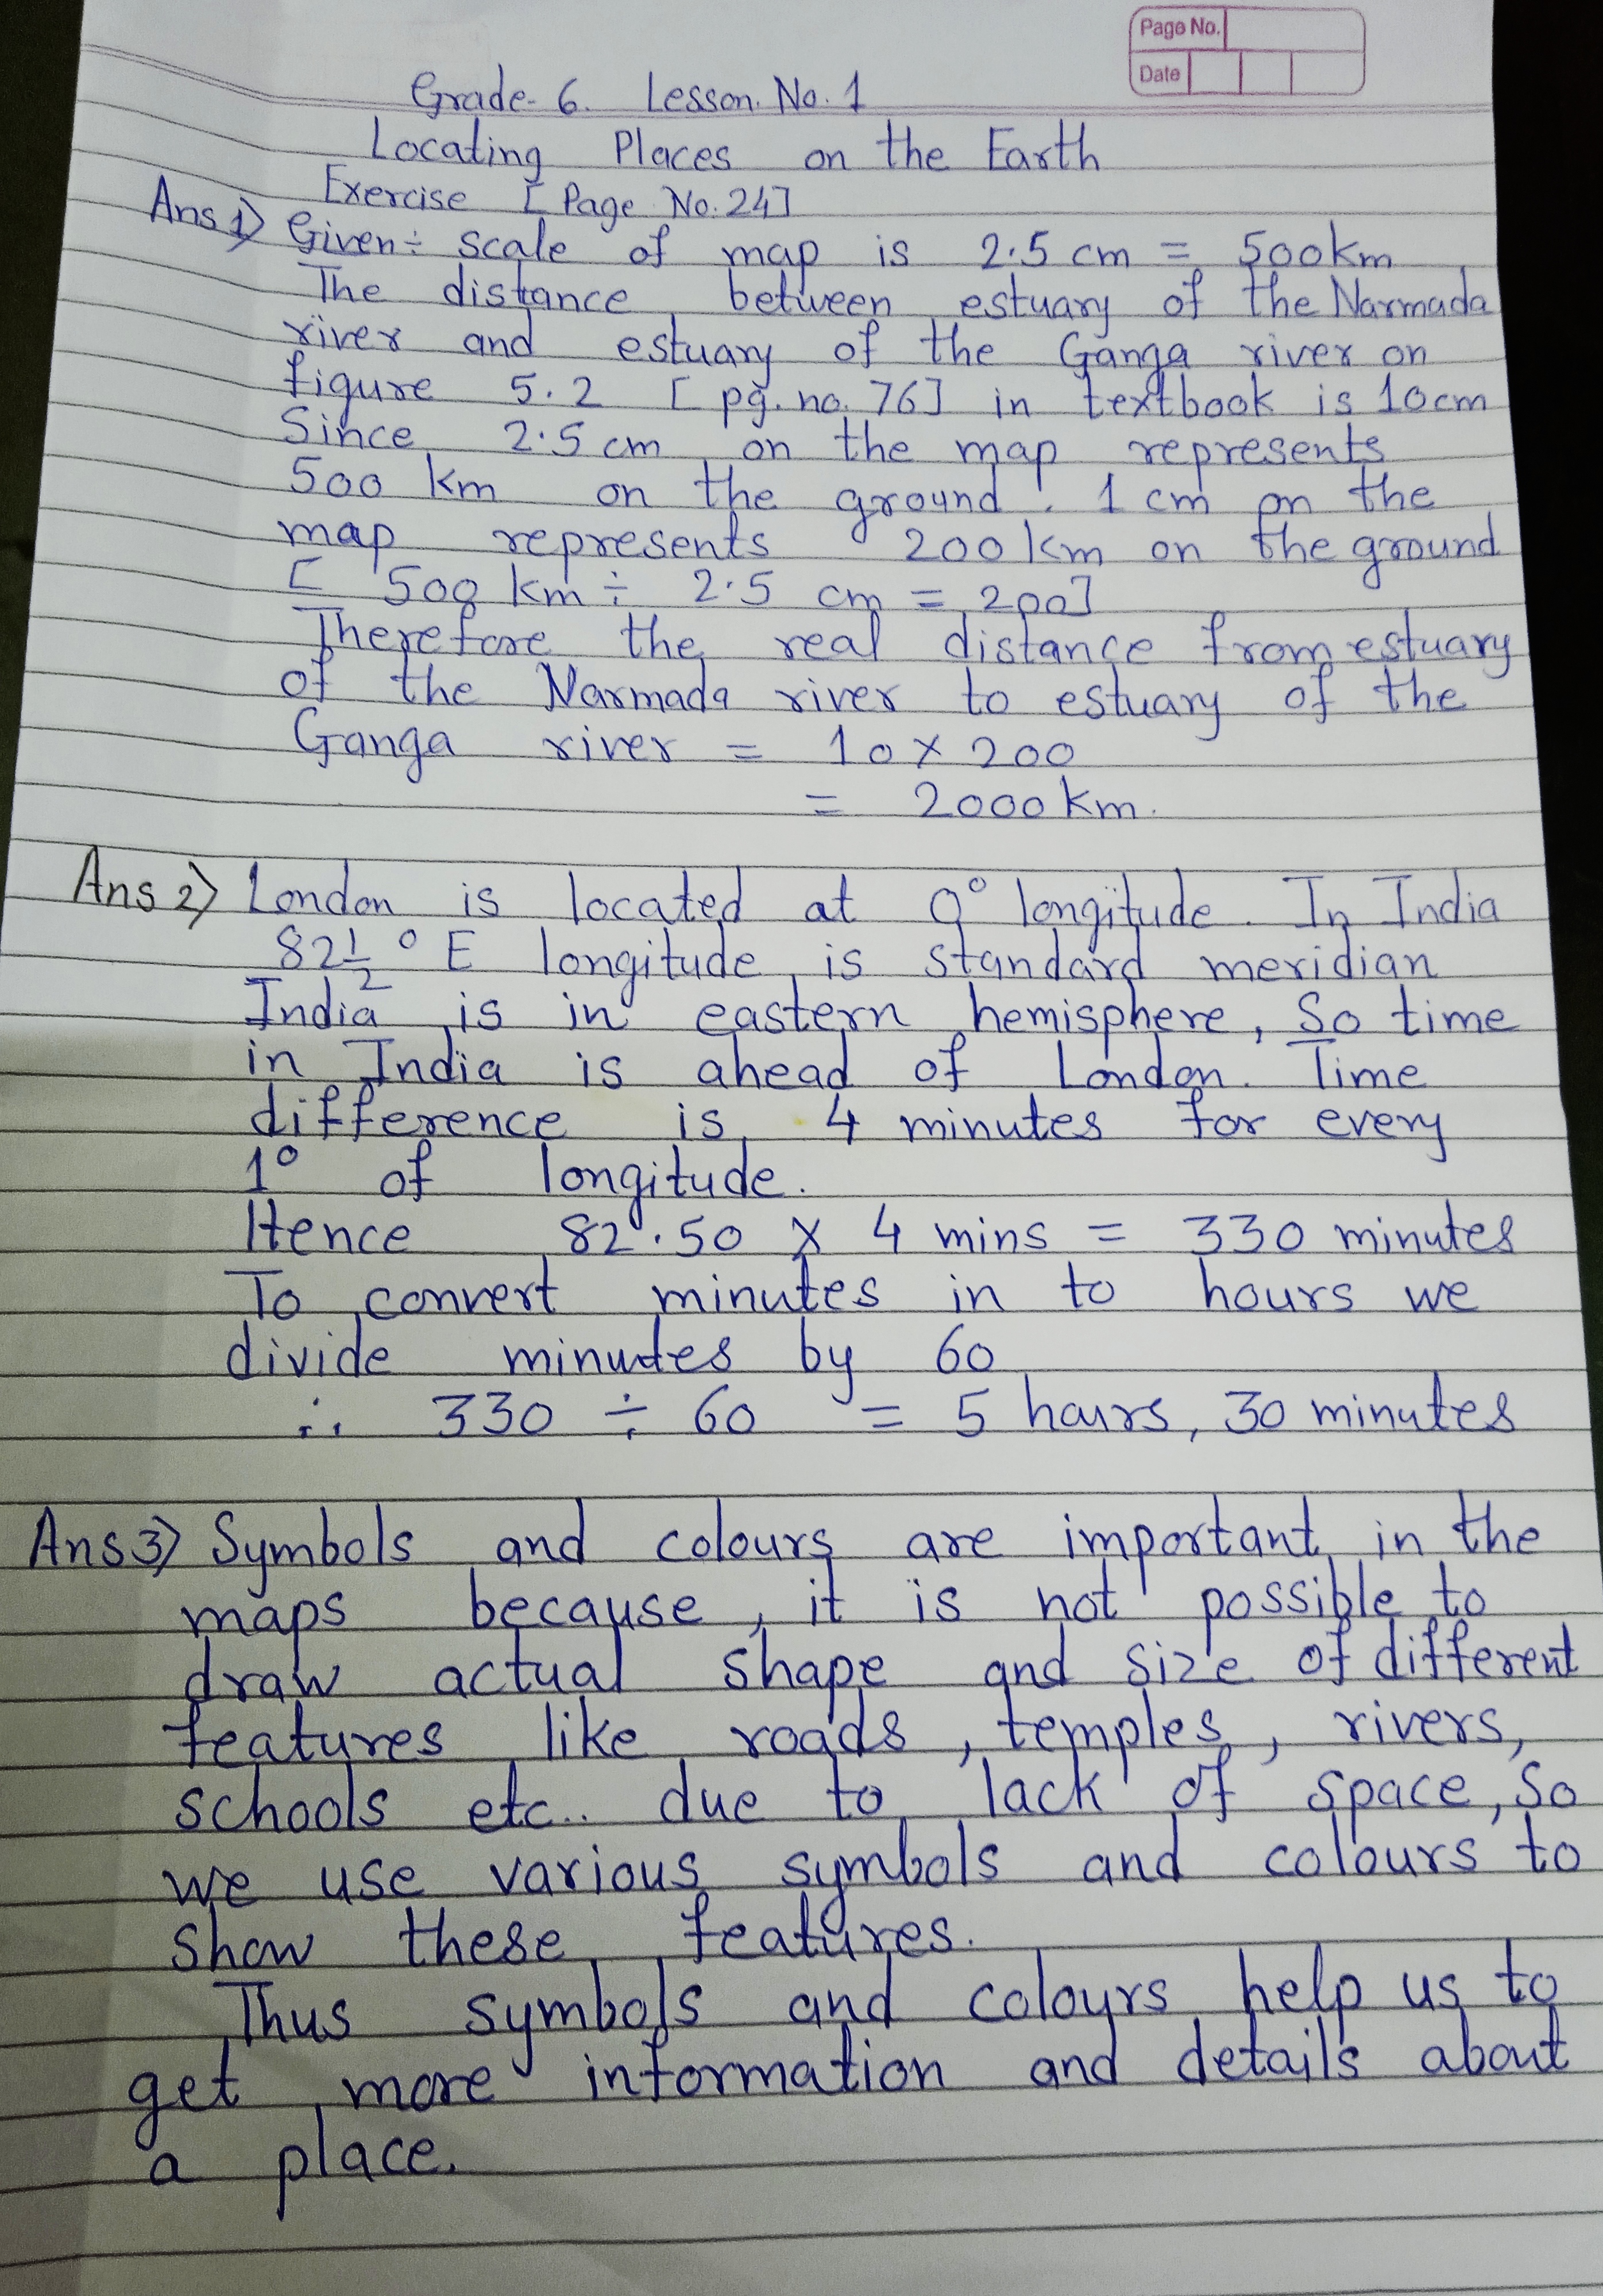 Page No.
Date
Grade-6. Lesson. No. 1
Locating Places on the Earth
Exercise [Page No. 24]
Ans 1) Given÷ scale of map is 2.5 cm = 500km.
The distance between estuary of the Narmada
river and estuary of the Ganga river on
figure 5.2 [pg. no. 76] in textbook is 10cm
Since 2.5 cm on the map represents
500 km on the ground. 1 cm on the
map represents 200 km on the ground
[500 km ÷ 2.5 cm = 200]
Therefore the real distance from estuary
of the Narmada river to estuary of the
Ganga river = 10 × 200
= 2000 km.
Ans 2) London is located at 0° longitude. In India
82 1/2 ° E longitude is standard meridian
India is in eastern hemisphere, So time
in India is ahead of London. Time
difference is 4 minutes for every
1° of longitude.
Hence 82.50 × 4 mins = 330 minutes
To convert minutes in to hours we
divide minutes by 60
∴ 330 ÷ 60 = 5 hours, 30 minutes
Ans 3) Symbols and colours are important in the
maps because, it is not possible to
draw actual shape and size of different
features like roads, temples, rivers,
schools etc.. due to lack of space, So
we use various symbols and colours to
show these features.
Thus symbols and colours help us to
get more information and details about
a place.